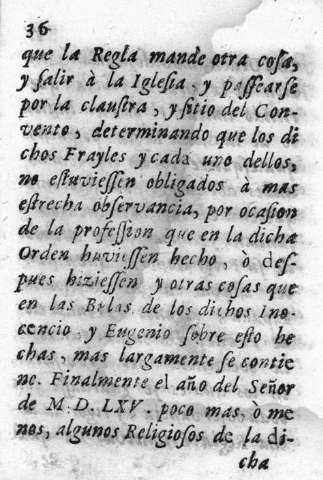 36
que la Regla mande otra cosa,
y salir à la Iglesia, y passearse
por la claustra, y sitio del Con-
vento, determinando que los di
chos Frayles y cada uno dellos,
no estuviessen obligados à mas
estrecha observancia, por ocasion
de la profession que en la dicha
Orden huviessen hecho, ò des-
pues hiziessen, y otras cosas que
en las Bulas de los dichos Ino-
cencio, y Eugenio sobre esto he
chas, mas largamente se contie
ne. Finalmente el año del Señor
de M. D. LXV. poco mas, ò me
nos, algunos Religiosos de la di-
cha